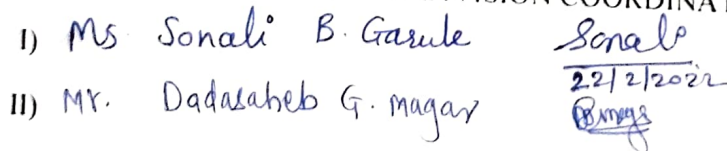 I) Ms Sonali B. Garule Sonali
22/2/2022
II) Mr. Dadasaheb G. Magar